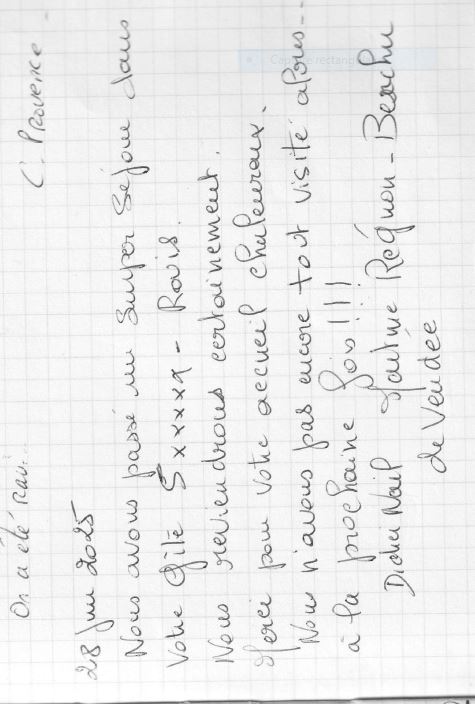 On a été ravi...
C. Provence
28 Juin 2025
Nous avons passé un super séjour dans
votre gîte 5 xxxxx - Ravis.
Nous reviendrons certainement.
Merci pour votre accueil chaleureux.
Nous n'avons pas encore tout visité alors...
à la prochaine fois !!!
Didier Martine
de Vendée